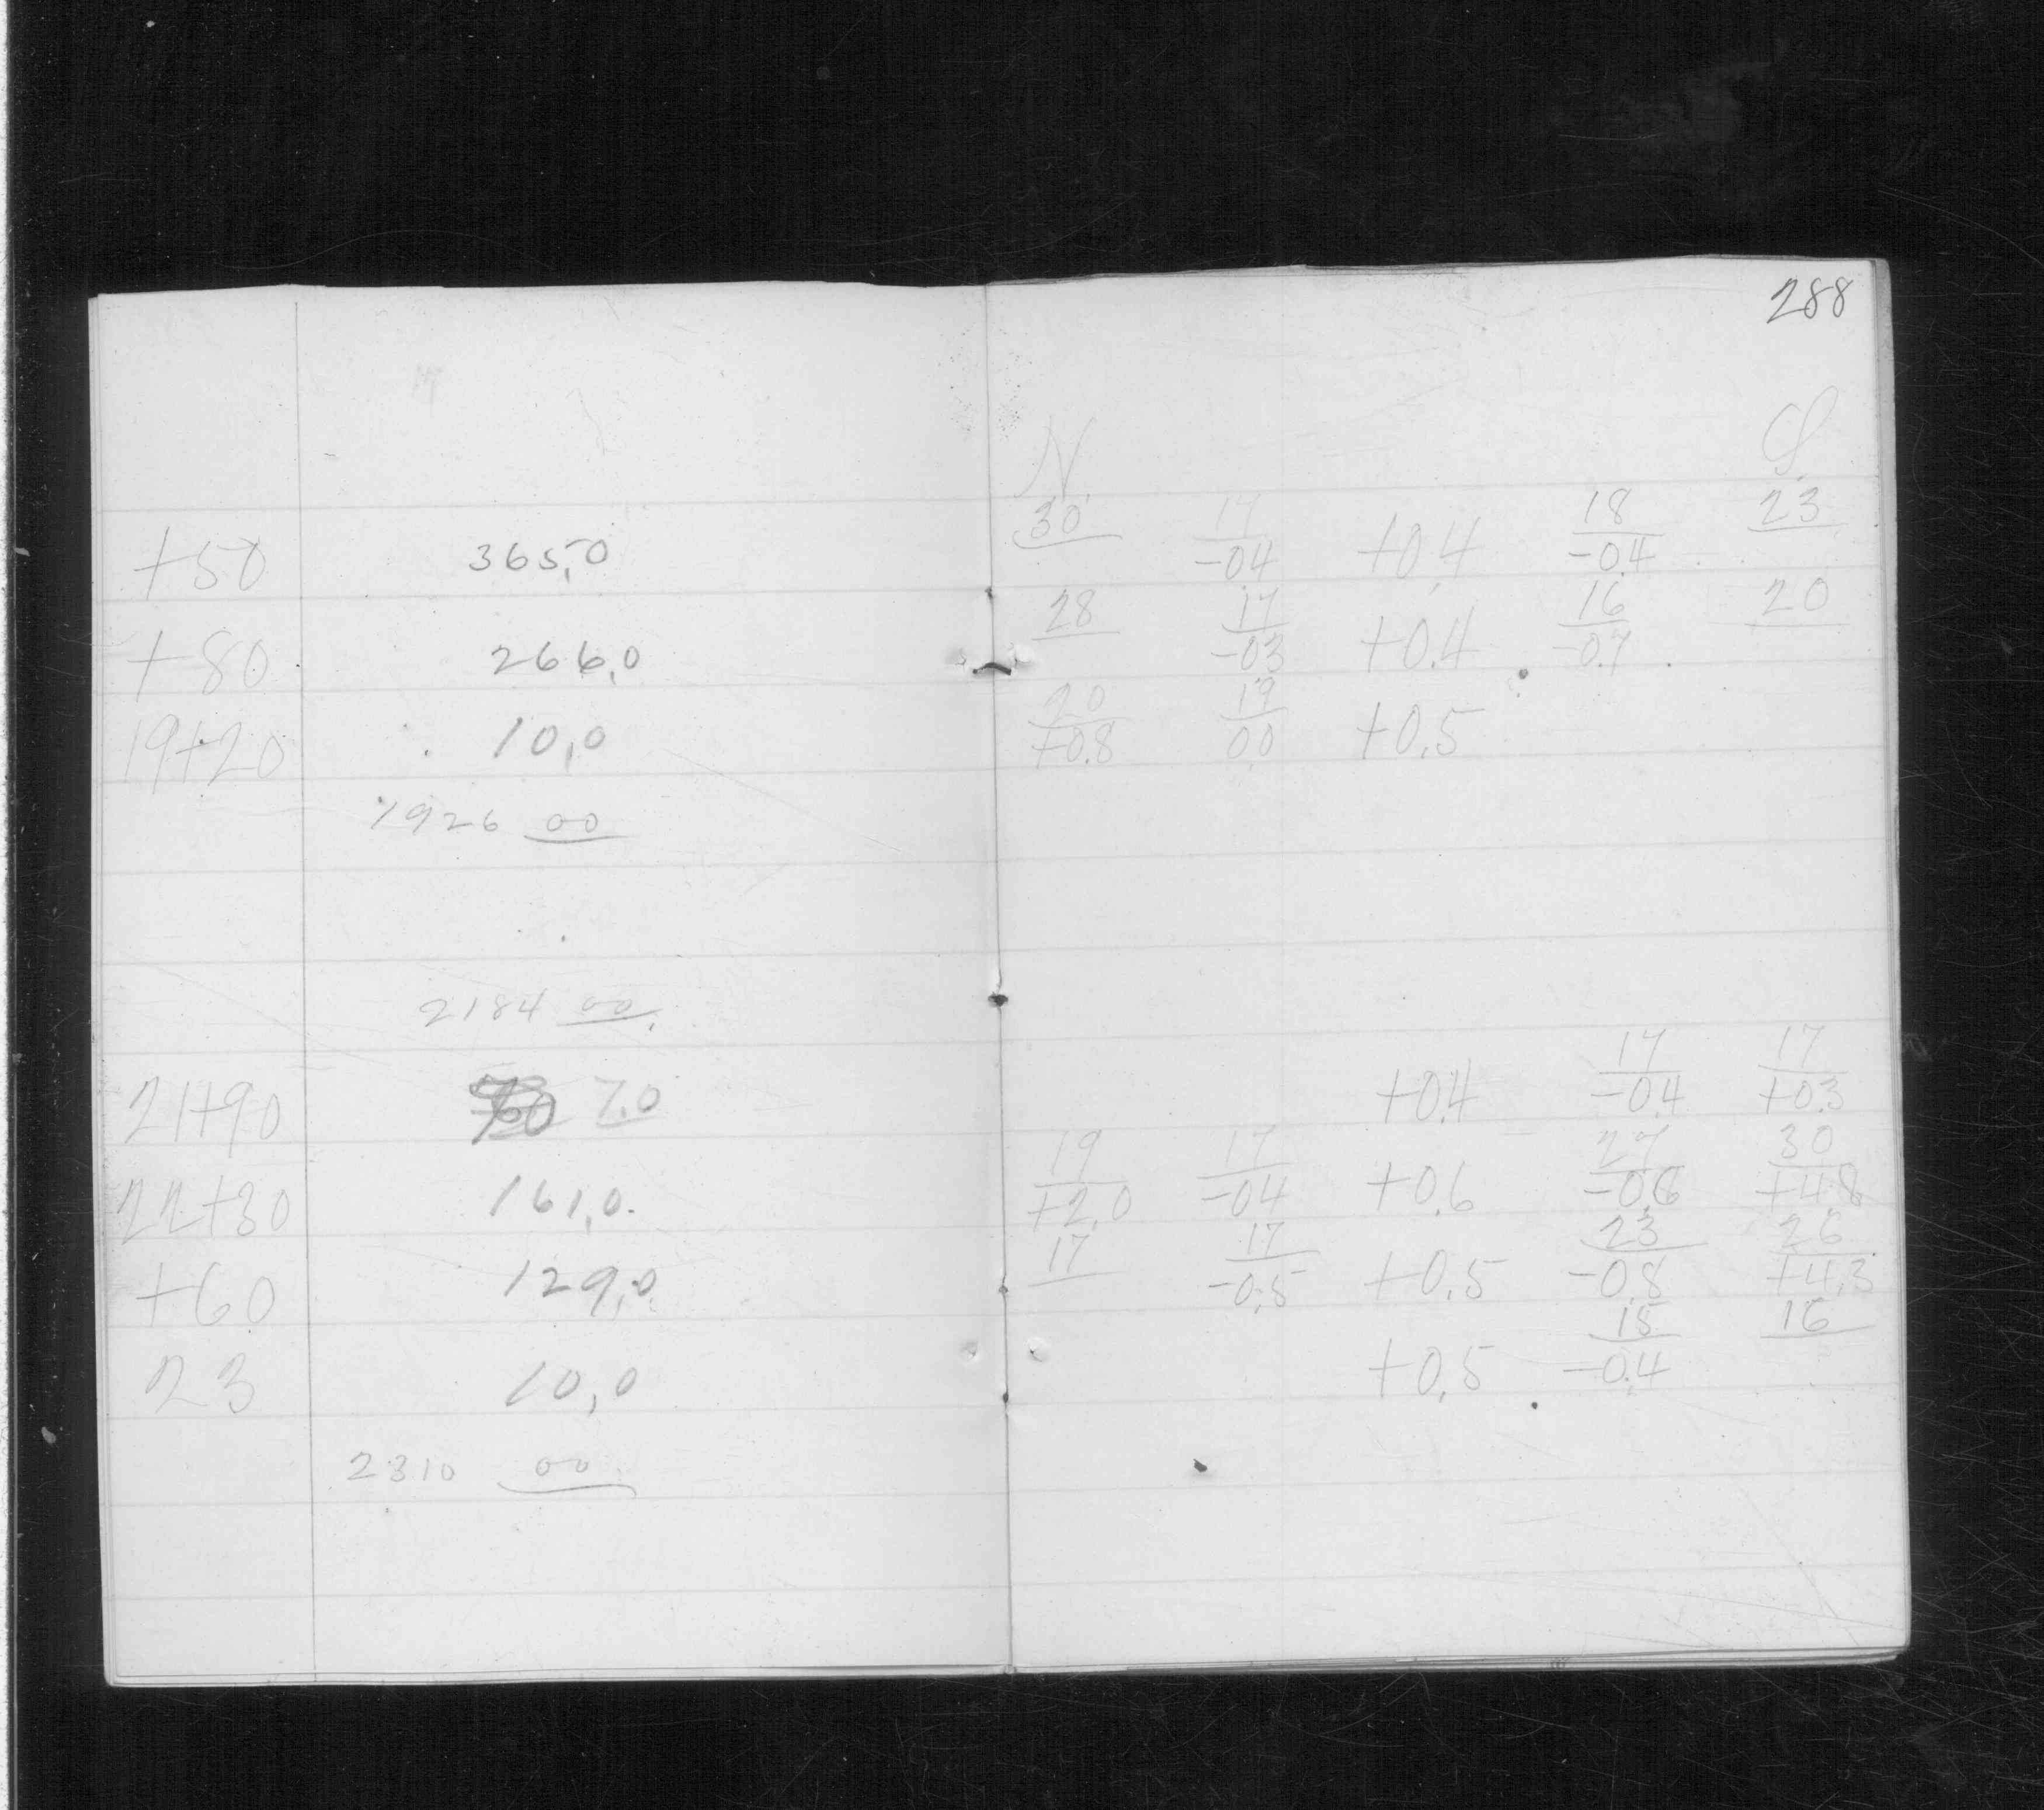 288
+50 365,0
+80 266,0
19+20 10,0
1926 00
2184 00
21+90 7.0
22+30 161,0
+60 129,0
23 10,0
2310 00
N S
30 17 18 23
-04 +0.4 -0.4
28 17 16 20
-03 +0.4 -0.7
20 19
+0.8 00 +0.5
17 17
+0.4 -0.4 +0.3
19 17 27 30
+2.0 -04 +0.6 -0.6 +4.8
17 17 23 26
-0.5 +0.5 -0.8 +4.3
15 16
+0.5 -0.4